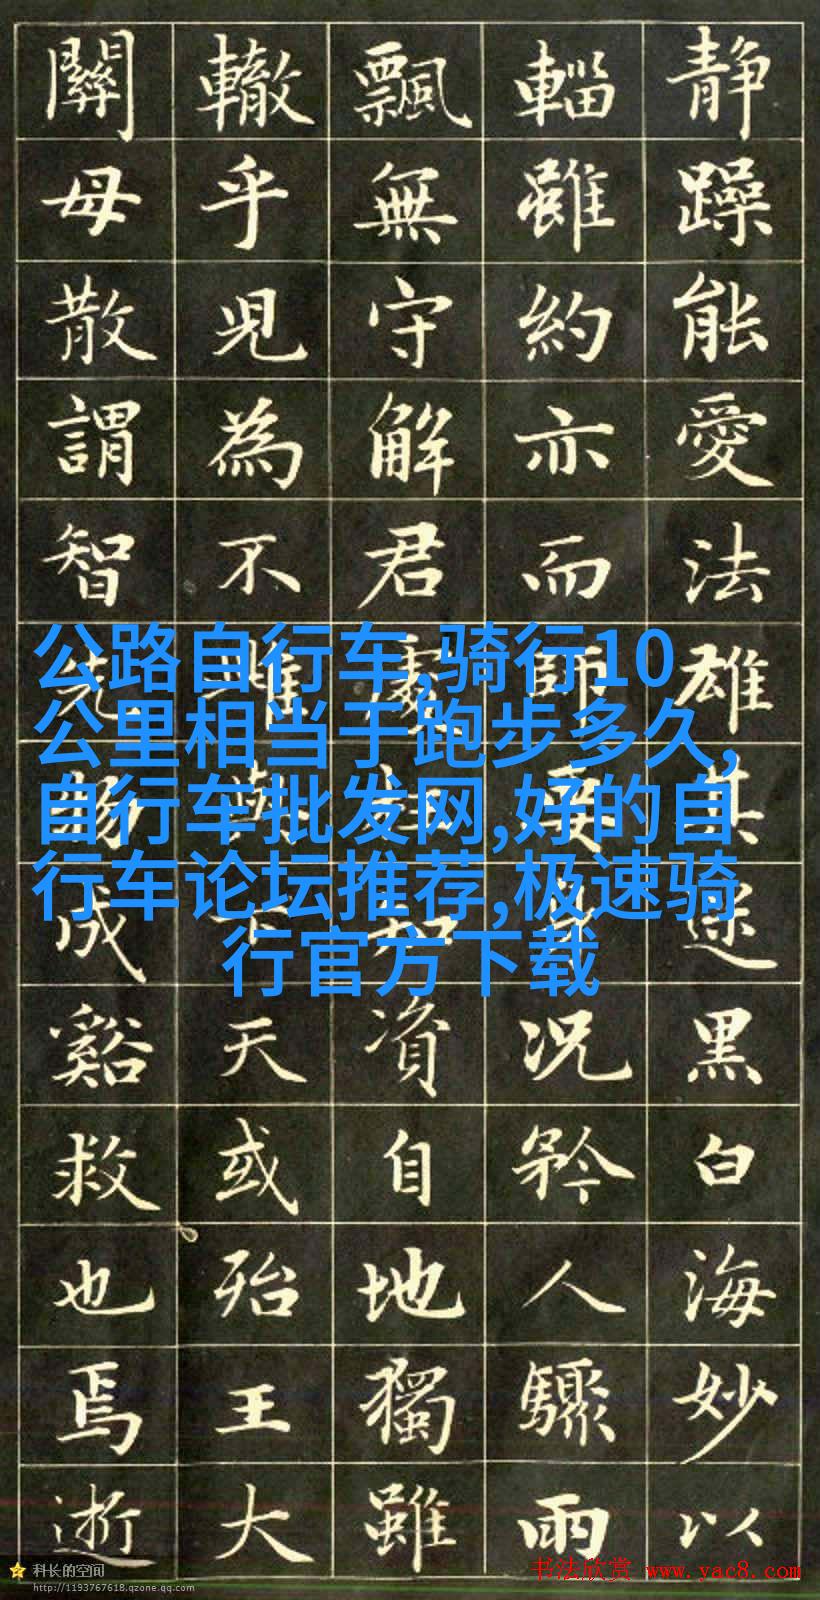 静躁能愛法雄其途黑白海妙以
輜雖約亦而師奚身況矜人驟雨
飄無守解君處知資自地獨雖
轍乎見為不雖天或殆王大
關母散謂智成谿救也焉逝
公路自行车,骑行10
公里相当于跑步多久,
自行车批发网,好的自
行车论坛推荐,极速骑
行官方下载
科长的空间
http://1193767618.qzone.qq.com
书法欣赏 www.yac8.com